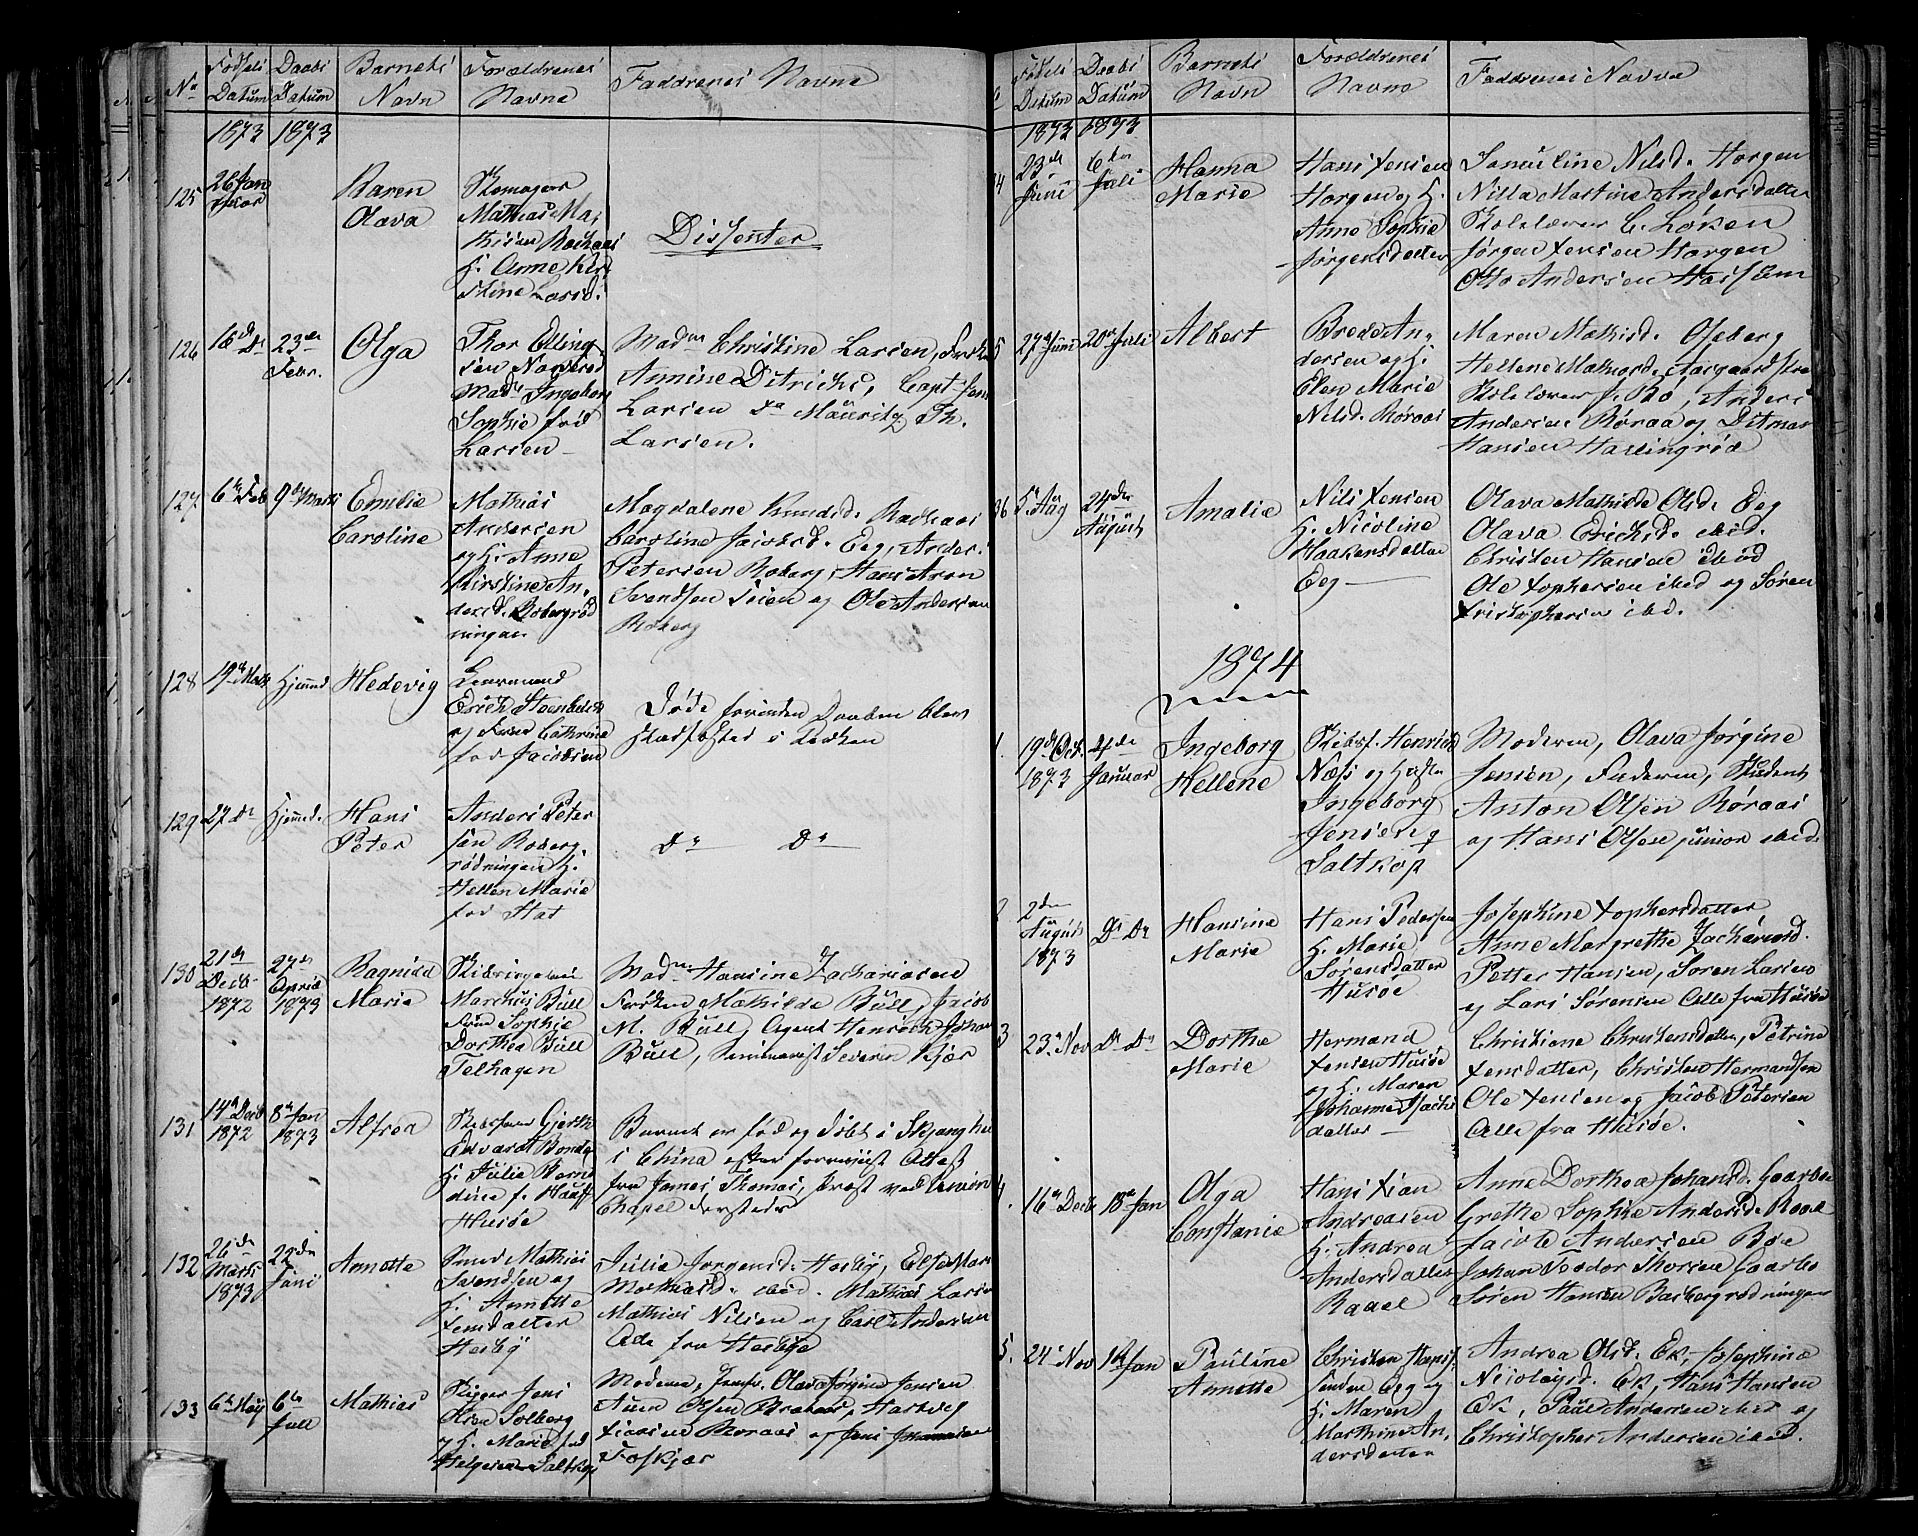 No
Fødsels Datum
Daabs Datum
Barnets Navn
Forældrenes Navne
Faddrenes Navne
1873 1873
125
26 Jan
Karen
Olava
Skomager
Mathias Ma
thisen
h. Anne Kir
stine Larsd.
Dissenter
126
16de Do
23de
Febr.
Olga
Thor Elling
sen
Mad. Ingeborg
Sophie fød
Larsen
Madm Christine Larsen,
Annine Ditrichs, Capt. Jens
Larsen Do Mauritz Th.
Larsen.
127
6te Feb
9de Marts
Emilie
Caroline
Mathias
Andersen
og h. Anne
Kirstine An
dersd. Robergrød
ningen
Magdalene Knudsd.
Caroline Jacobsd. Eeg, Anders
Petersen Roberg, Hans Aron
Svendsen og Ole Andersen
Roberg
128
19de Marts
Hjemmed
Hedevig
Erich
og Frue Cathrine
fød Jacobsen
Døde forinden Daaben blev
stadfæsted i Kirken
129
27 Do
Hjemmed.
Hans
Peter
Anders Peter
sen Roberg
rødningen h.
Hellen Marie
fød
Do Do
130
21de
Decb.
1872
27de
April
1873
Ragnild
Marie
Marchus Bull
Frue Sophie
Dorthea Bull
Telhagen
Madm Hansine Zachariasen
Frøken Mathilde Bull, Jacob
M. Bull, Agent Henrich Johan
Bull, Seminarist Severin Kjær
131
14de Decb
1872
8de Jan
1873
Alfred
Gjerth
Edvardt Bonde
h. Julie Bern
dine f. Hauff
Husøe
Barnet er fød og døbt i Skjanghai
i China efter forrevist Attest
fra James Thomas, Præst ved Union
Chapel dersteds
132
26de
Marts
1873
22de
Juni
Annette
Knud Mathias
Svendsen og
h. Annette
Jensdatter
Hesby
Julie Jørgensd. Hesby, Else Mar
Mathiasd. ibid. Mathias Larsen
Mathias Nilsen og Carl Andersen
Alle fra Hesbye
133
6te May
6te
Juli
Mathias
Skipper Jens
Olsen Solberg
og h. Marie fød
Helgesen Saltkop
Moderen, Jomfr. Olava Jørgine Jensen
Olsen Hartvig
Roraas og Jens Johannesen
Foskjær
Fødsels Datum
Daabs Datum
Barnets Navn
Forældrenes Navne
Faddrenes Navne
1873 1873
4
23de
Juni
6te
Juli
Hanna
Marie
Hans Xensen
Horgen og h.
Anne Sophie
Jørgensdatter
Samueline Nilsd. Horgen
Nilla Martine Andersdatter
Skolelærer C. Løken
Jørgen Xensen Horgen
Otto Andersen
5
27de Juni
20de Juli
Albert
Brede An
dersen og h.
Elen Marie
Nilsd. Roraas
Maren Mathisd. Oseberg
Hellene Mathisd. Aasgaardstra
Skolelærer J. Bø, Anders
Andersen Røraa og Ditmar
Hansen
36
5te Aug
24de
August
Amalie
Nils Xensen
h. Nicoline
Haakensdatter
Eeg
Olava Mathilde Olsd. Eeg
Olava Erichsd. ibid.
Christen Hansen ibid
Ole Xophersen ibid og Søren
Xristophersen ibid.
1874
1.
19de Oct.
1873
4de
Januar
Ingeborg
Hellene
Skibsf. Henrich
Næss og Hustru
Ingeborg
Jensine
Saltkop
Moderen, Olava Jørgine
Jensen, Faderen, Student
Anton Olsen Røraas
og Hans Olsen junior ibid.
2
2den
August
1873
Do Do
Hansine
Marie
Hans Pedersen
h. Marie
Sørensdatter
Husøe
Josephine Xophersdatter
Anne Margrethe Zachariasd.
Petter Hansen, Søren Larsen
og Lars Sørensen Alle fra Husøe
3
23de Nov
Do Do
Dorthe
Marie
Hermand
Xensen Husøe
og h. Maren
Johanne Isachs
datter
Christiane Christensdatter, Petrine
Xensdatter, Christen Hermandsen
Ole Xensen og Jacob Petersen
Alle fra Husøe.
4.
16de Decb
18de Jan
Olga
Constance
Hans Xian
Andreasen
h. Andrea
Andersdatter
Raael
Anne Dorthea Johansd. Gaarbo
Grethe Sophie Andersd. Raael
Jacob Andersen Bøe
Johan Teodor Thorsen Gaarbo
Søren Hansen Basbergrødningen
5.
24de Nov
18de Jan
Pauline
Annette
Christen Hans
senden Eeg og
h. Maren
Marthine An
dersdatter
Andrea Olsd. Ek, Josephine
Nicolaysd. Ek, Hans Hansen
Ek, Paul Andersen ibid og
Christopher Andersen ibid.